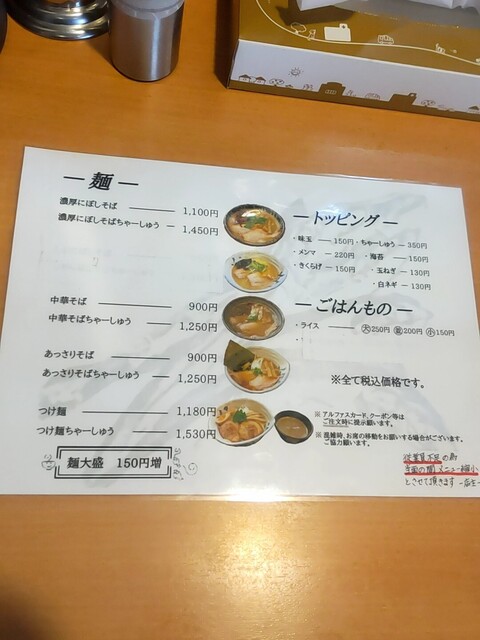 ― 麺 ―
濃厚にぼしそば ― 1,100円
濃厚にぼしそばちゃーしゅう ― 1,450円
中華そば ― 900円
中華そばちゃーしゅう ― 1,250円
あっさりそば ― 900円
あっさりそばちゃーしゅう ― 1,250円
つけ麺 ― 1,180円
つけ麺ちゃーしゅう ― 1,530円
麺大盛 150円増
― トッピング ―
・味玉 ― 150円・ちゃーしゅう ― 350円
・メンマ ― 220円 ・海苔 ― 150円
・きくらげ ― 150円 ・玉ねぎ ― 130円
・白ネギ ― 130円
― ごはんもの ―
・ライス ― 大250円 並200円 小150円
※全て税込価格です。
※ アルファスカード、クーポン等は
ご注文時に提示願います。
※ 混雑時、お席の移動をお願いする場合がございます。
ご協力願います。
従業員不足の為
当面の間メニュー縮小
とさせて頂きます